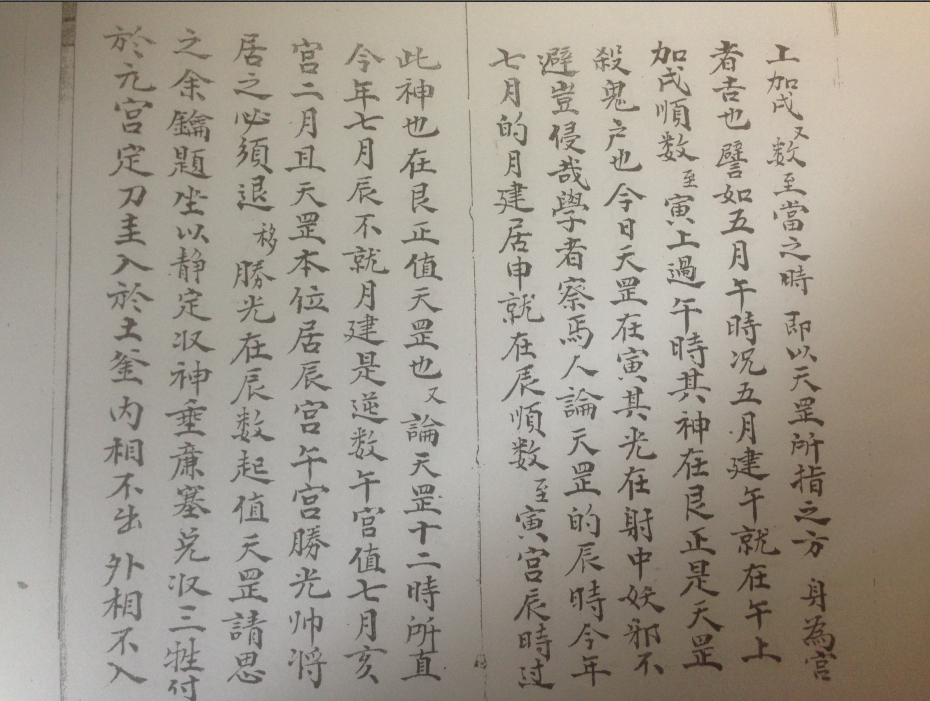 上加戌又数至當之時 即以天罡所指之方 身為宫
者吉也譬如五月午時况五月建午就在午上
加戌順数至寅上過午時其神在艮正是天罡
殺鬼户也今日天罡在寅其光在射中妖邪不
避豈侵哉學者察焉人論天罡的辰時今年
七月的月建居申就在辰順数至寅宫辰時过
此神也在艮正值天罡也又論天罡十二時所直
今年七月辰不就月建是逆数午宫值七月亥
宫二月且天罡本位居辰宫午宫勝光帅将
居之必須退移勝光在辰数起值天罡請思
之余鑰題坐以静定収神垂廉塞兑収三牲付
於元宫定刀圭入於土釜内相不出 外相不入